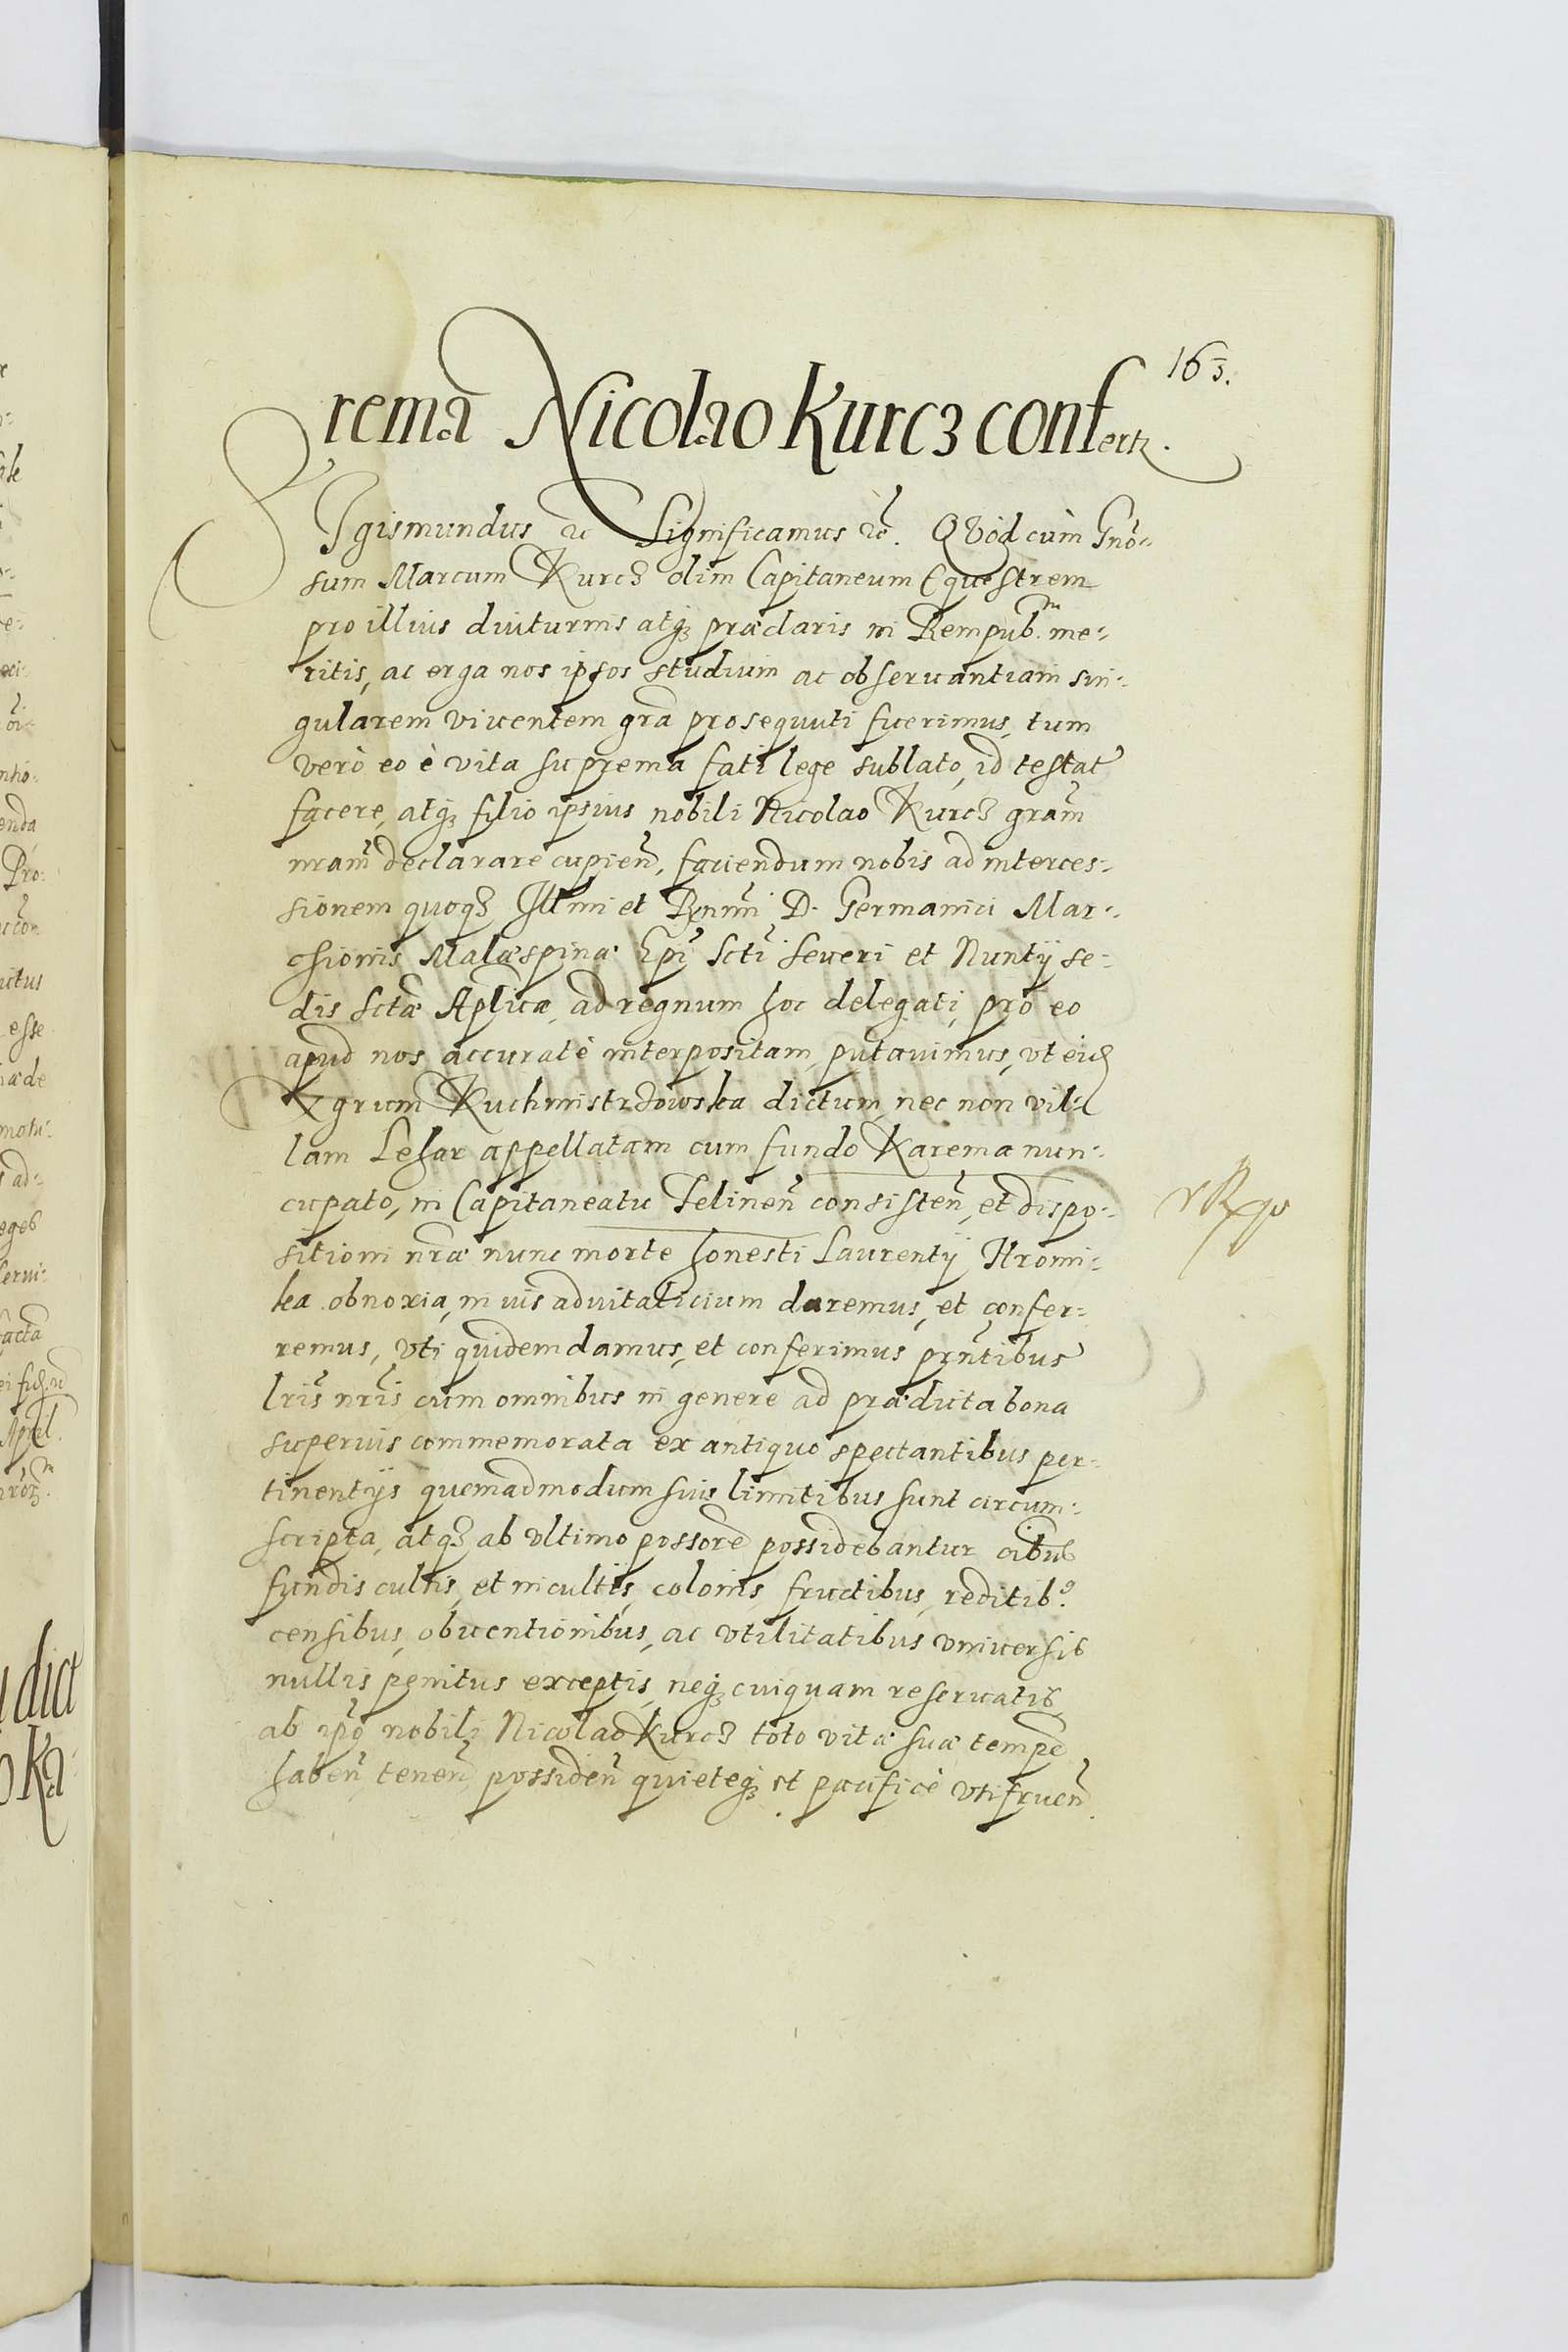 163.
remá Nicolao Kurcz confertr.
SIgismundus etc Significamus etc. QVòd cùm Gnõ-
sum Marcum Kurcz olim Capitaneum Equestrem
pro illius diuturnis atqz præclaris in Rempub.m me-
ritis, ac erga nos ipsos studium ac obseruantiam sin-
gularem viuentem grã prosequuti fuerimus, tum
verò eo è vita suprema fati lege sublato, id testat
facere, atqz filio ipsius nobili Nicolao Kurcz gram̃
nram̃ declarare cupieñ, faciendum nobis ad interces-
sionem quoqz Illmi et Rñmi D. Germanici Mar-
chionis Malæspinæ Epĩ Sctĩ Seueri et Nuntij se-
dis Sctæ Aplicæ, ad regnum hoc delegati, pro eo
apud nos accuratè interpositam, putauimus, vt eid
Agrum Kuchmistrdowska dictum, nec non vil-
lam Lehar appellatam cum fundo Karema nun-
cupato, in Capitaneatu Felineñ consisteñ, et dispo-
sitioni nræ nunc morte honesti Laurentij Hromi-
ka obnoxia, in uis aduitalicium daremus, et confer-
remus, vti quidem damus, et conferimus prñtibus
lrĩs nrĩs cum omnibus in genere ad prædicta bona
superius commemorata ex antiquo spectantibus per-
tinentijs quemadmodum suis limitibus sunt circum-
scripta, atqz ab vltimo possore possidebantur oĩbus
fundis cultis, et incultis, colonis fructibus, reditib9
censibus, obuentionibus, ac vtilitatibus vniuersis
nullis penitus exceptis, neqz cuiquam reseruatis
ab ipõ nobili Nicolao Kurcz toto vitæ suæ tempe
habeñ teneñ possideñ quieteqz et pacificè vtifrueñ.